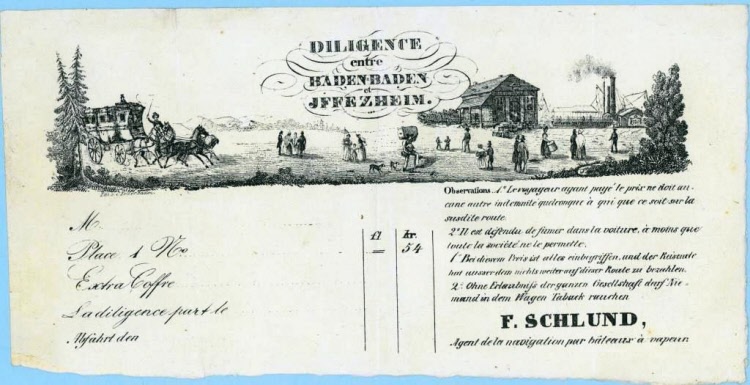 DILIGENCE
entre
BADEN-BADEN
et
JFFEZHEIM.
M.
fl kr.
Place 1 No — 54
Extra Coffre
La diligence part le
Abfahrt den
Observations. 1º Le voyageur ayant payé le prix ne doit au-
cune autre indemnité quelconque à qui que ce soit sur la
susdite route.
2º Il est défendu de fumer dans la voiture, à moins que
toute la société ne le permette.
1º Bei diesem Preis ist alles einbegriffen, und der Reisende
hat ausser dem nichts weiter auf dieser Route zu bezahlen.
2º Ohne Erlaubniss der ganzen Gesellschaft darf Nie-
mand in dem Wagen Taback rauchen
F. SCHLUND,
Agent de la navigation par bâteaux à vapeur.